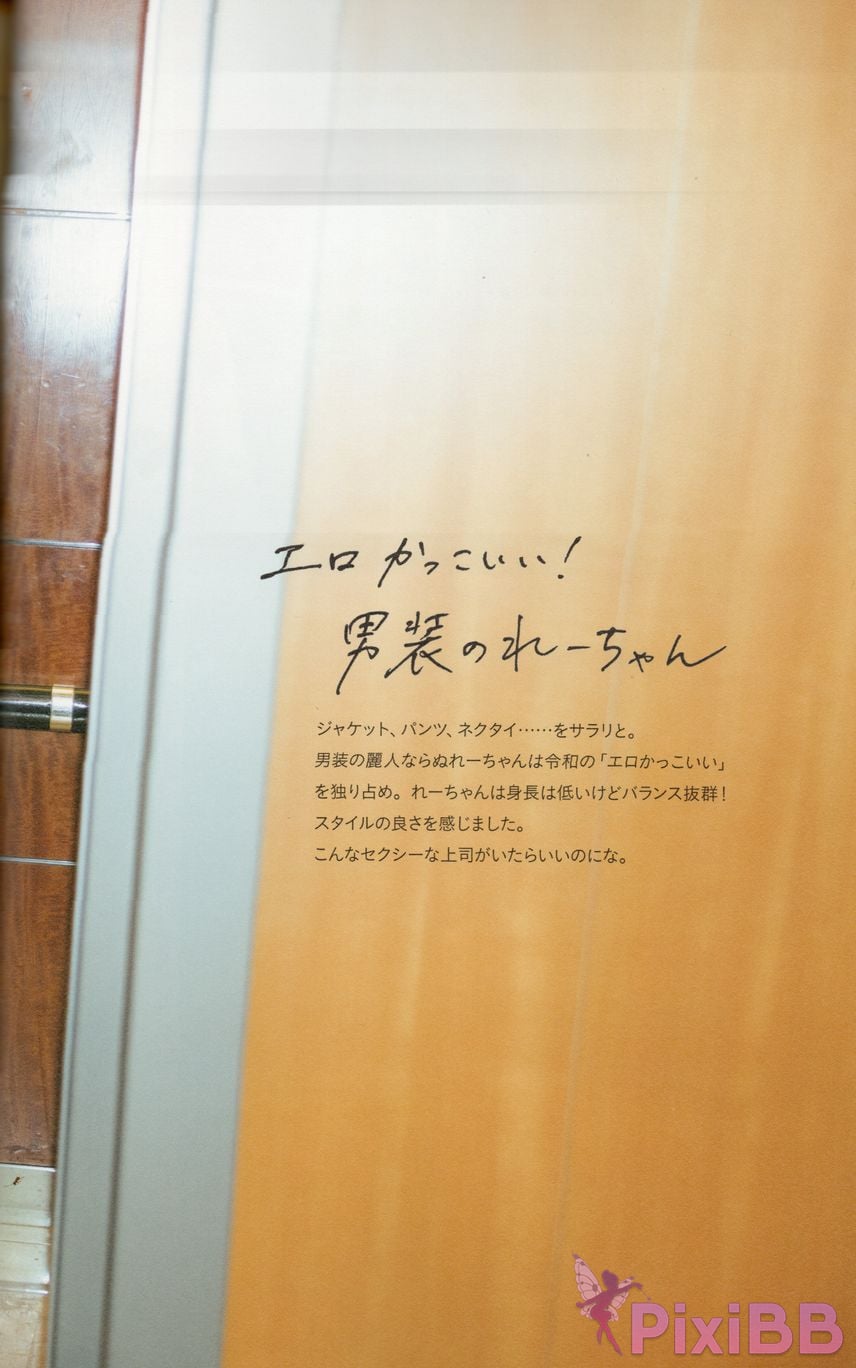 エロかっこいい!
男装のれーちゃん
ジャケット、パンツ、ネクタイ……をサラリと。
男装の麗人ならぬれーちゃんは令和の「エロかっこいい」
を独り占め。れーちゃんは身長は低いけどバランス抜群!
スタイルの良さを感じました。
こんなセクシーな上司がいたらいいのにな。
PixiBB